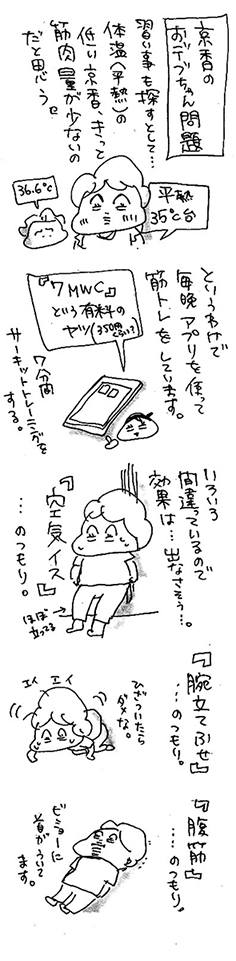 京香の
おデブちゃん問題
習い事を探すとして…
体温(平熱)の
低い京香、きっと
筋肉量が少ないの
だと思う。
平熱
35℃台
36.6℃
というわけで
毎晩アプリを使って
筋トレをしています。
『7MWC』
という有料の
ヤツ(350円くらい?)
7分間
サーキットトレーニングを
する。
いろいろ
間違っているので
効果は…出なさそう…。
『空気イス』
…のつもり。
ほぼ
立ってる
『腕立てふせ』
…のつもり。
ひざついたら
ダメな。
エイ エイ
『腹筋』
…のつもり。
ビミョーに
首がういて
ます。